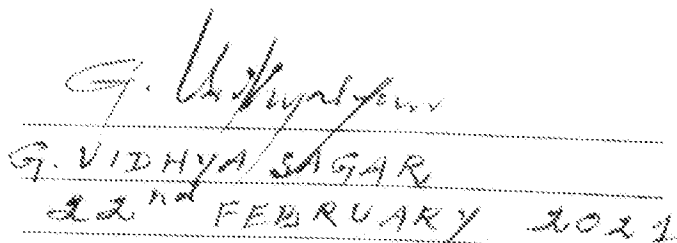 G. Vidhyasagar
G. VIDHYA SAGAR
22nd FEBRUARY 2021